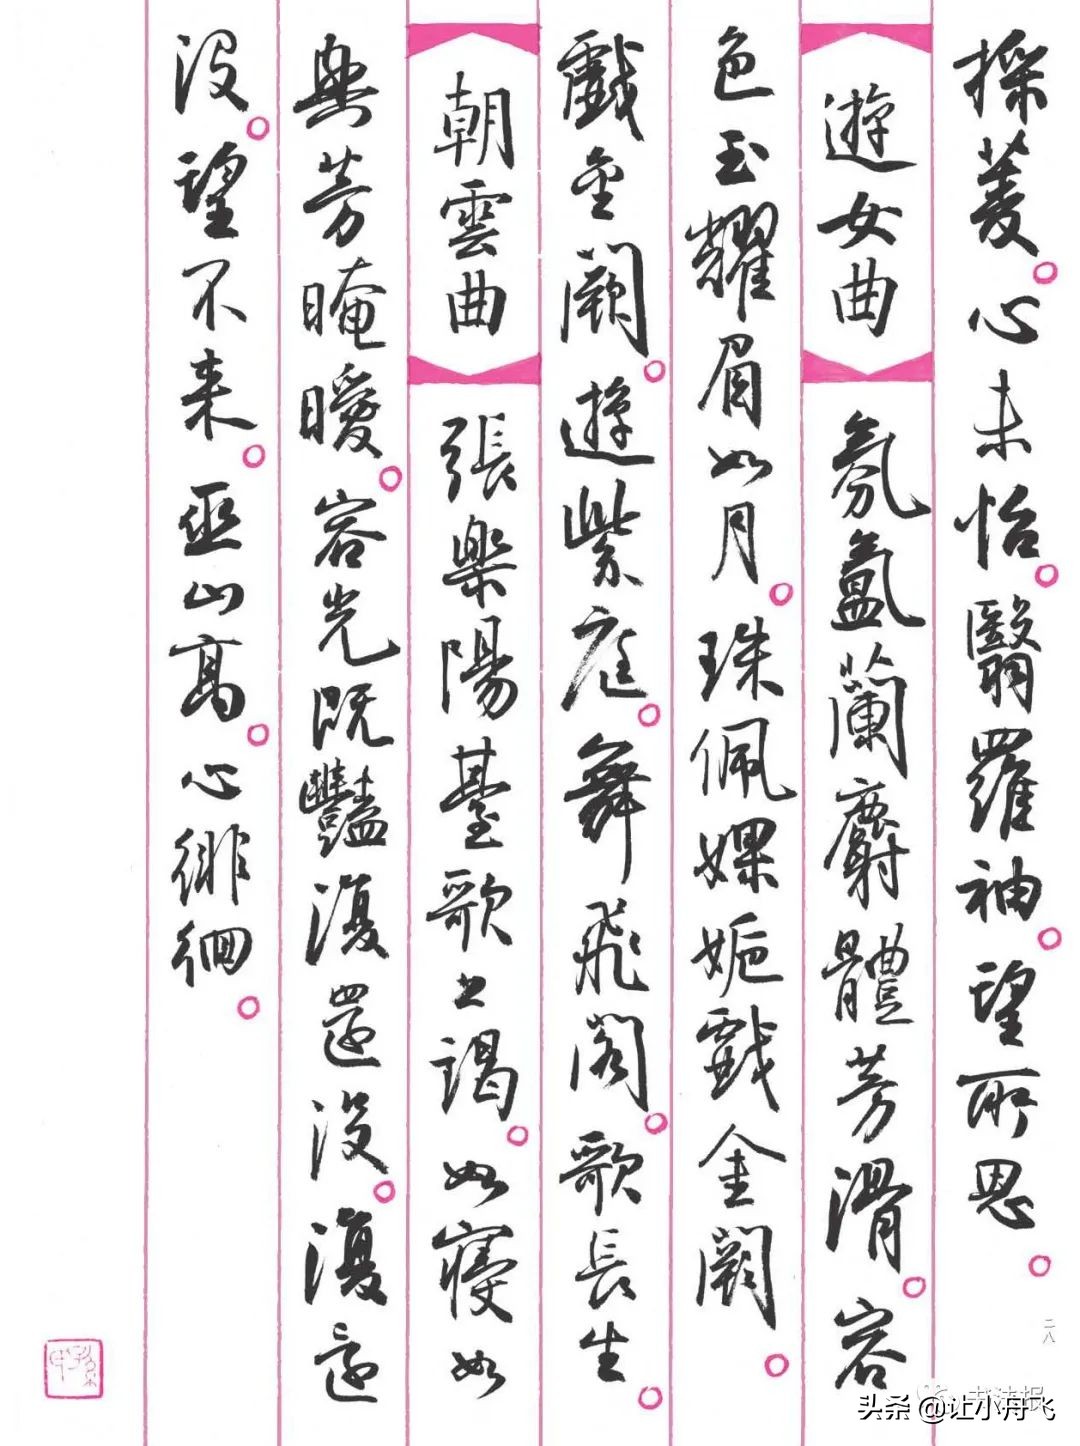 採菱。心未怡。翳羅袖。望所思。
遊女曲 氛氳蘭麝體芳滑。容
色玉耀眉如月。珠佩婐㛂戲金闕。
戲金闕。遊紫庭。舞飛閣。歌長生。
朝雲曲 張樂陽臺歌上謁。如寢如
興芳晻曖。容光既豔復還沒。復還
沒。望不來。巫山高。心徘徊。
二八
书法报
头条 @让小舟飞